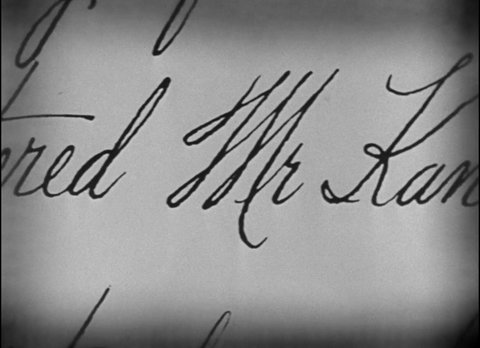 ered Mr Kan